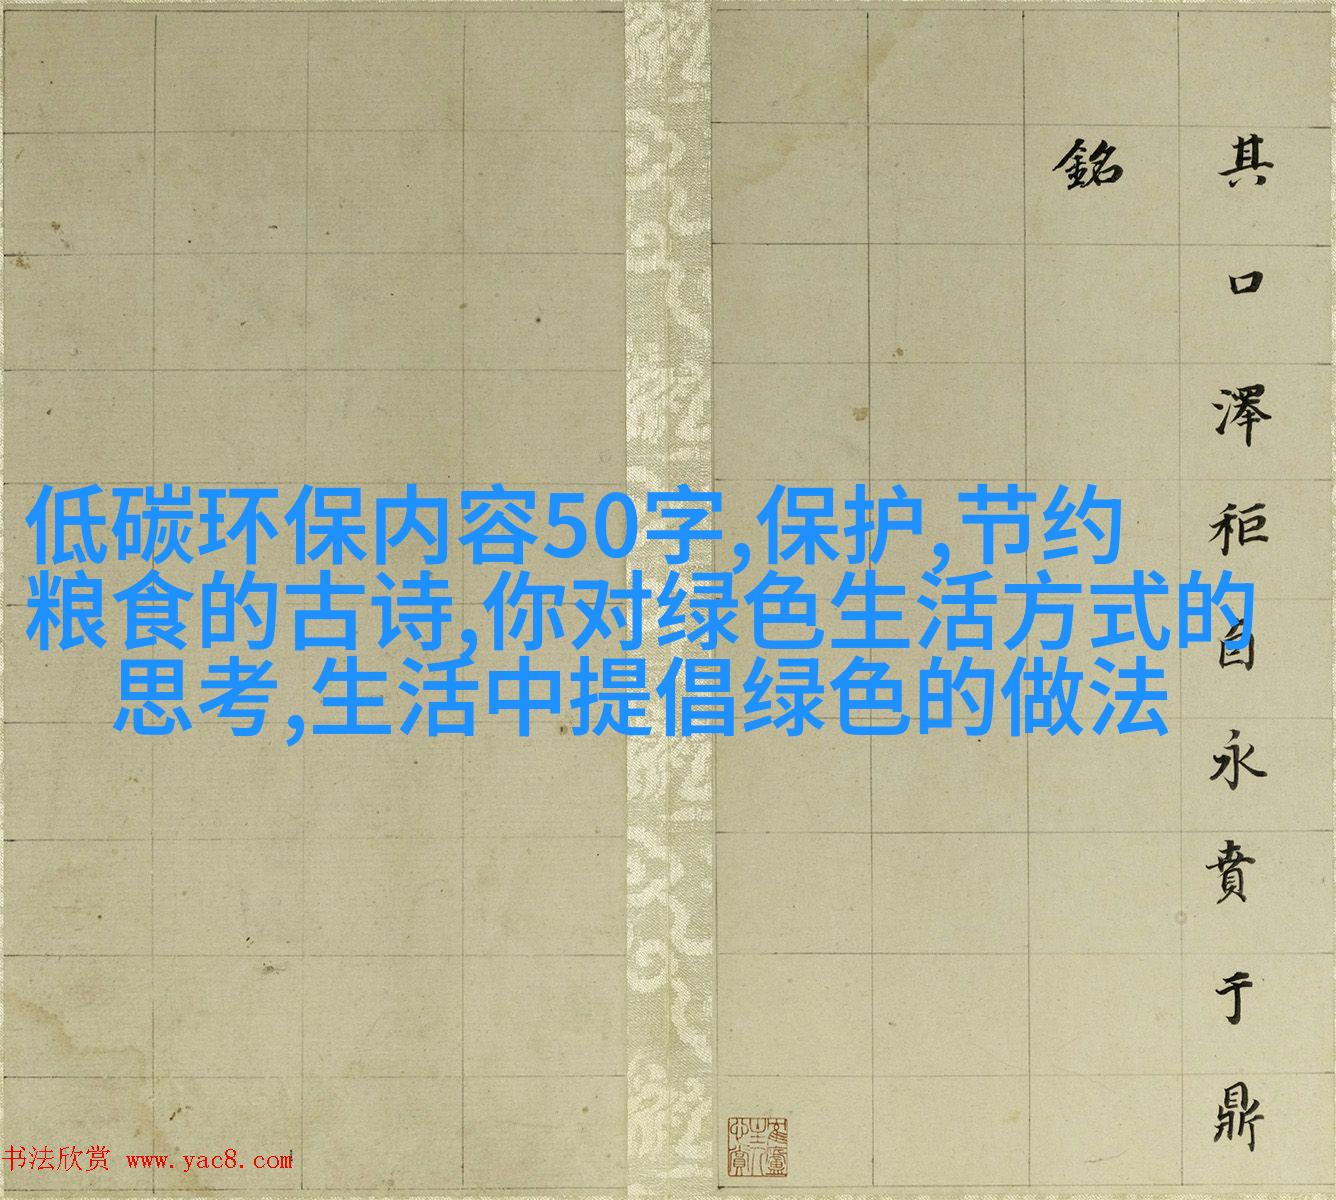 其口澤秬自永賁于鼎
銘
低碳环保内容50字,保护,节约
粮食的古诗,你对绿色生活方式的
思考,生活中提倡绿色的做法
书法欣赏 www.yac8.com